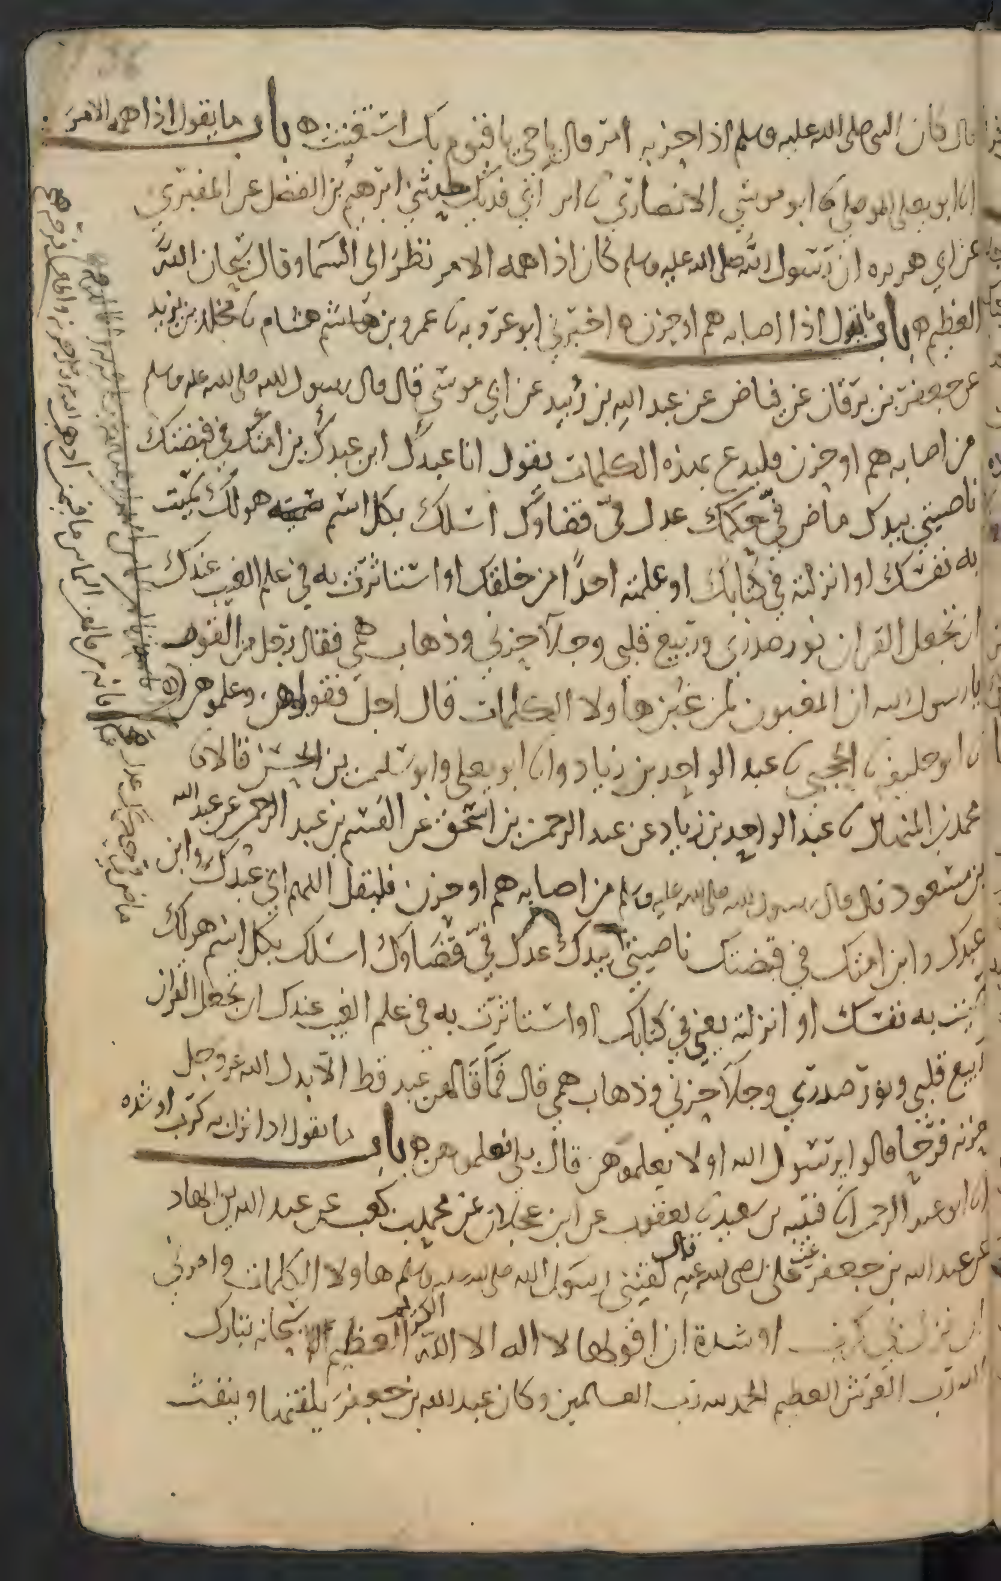 قال كان النبي صلى الله عليه وسلم اذا حزبه امر قال يا حي يا قيوم بك استغيث باب ما يقول اذا اهمه الامر
انا ابو يعلى الموصلي ابو موسى الانصاري ابن ابي فديك حدثني ابرهيم بن الفضل عن المقبري
عن ابي هريره ان رسول الله صلى الله عليه وسلم كان اذا اهمه الامر نظر الى السما وقال سبحان الله
العظيم باب ما يقول اذا اصابه هم او حزن اخبرني ابو عروبه عمرو بن هشام مخلد بن يزيد
عن جعفر بن برقان عن فياض عن عبد الله بن زبيد عن ابي موسى قال قال رسول الله صلى الله عليه وسلم
من اصابه هم او حزن فليدع بهذه الكلمات يقول انا عبدك ابن عبدك بن امتك في قبضتك
ناصيتي بيدك ماض في حكمك عدل في قضاوك اسلك بكل اسم هو لك سميت
به نفسك او انزلته في كتابك او علمته احدا من خلقك او استاثرت به في علم الغيب عندك
ان تجعل القران نور صدري وربيع قلبي وجلا حزني وذهاب همي فقال رجل من القوم
يا رسول الله ان المغبون لمن غبن هاولا الكلمات قال اجل فقولوهن وعلموهن
ابو خليفه الحجبي عبد الواحد بن زياد وانا ابو يعلى وابو سلمن بن الحسن قالا
محمد بن المنهال عبد الواحد بن زياد عن عبد الرحمن بن اسحق عن القسم بن عبد الرحمن عن عبد الله
بن مسعود قال قال رسول الله صلى الله عليه وسلم من اصابه هم او حزن فليقل اللهم اني عبدك وابن
عبدك وابن امتك في قبضتك ناصيتي بيدك عدل في قضاوك اسلك بكل اسم هو لك
سميت به نفسك او انزلته يعني في كتابك او استاثرت به في علم الغيب عندك ان تجعل القران
ربيع قلبي ونور صدري وجلا حزني وذهاب همي قال فما قالهن عبد قط الا ابدل الله عز وجل
حزنه فرحا قالوا يرسول الله اولا نعلمهن قال بلى باب ما يقول اذا نزل به كرب او شده
انا ابو عبد الرحمن انا قتيبه بن سعيد يعقوب عن ابن عجلان عن محمد بن كعب عن عبد الله بن الهاد
عن عبد الله بن جعفر عن علي رضي الله عنه قال لقنني رسول الله صلى الله عليه وسلم هاولا الكلمات وامرني
ان نزل بي كرب او شدة ان اقولها لا اله الا الله الكريم العظيم سبحانه تبارك
الله رب العرش العظيم الحمد لله رب العالمين وكان عبد الله بن جعفر يلقنها وينفث